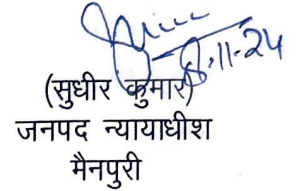 8.11-24
(सुधीर कुमार)
जनपद न्यायाधीश
मैनपुरी